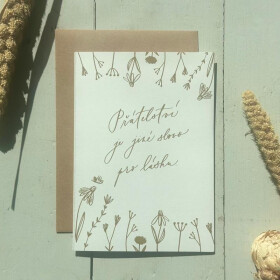 Přátelství
je jiné slovo
pro lásku